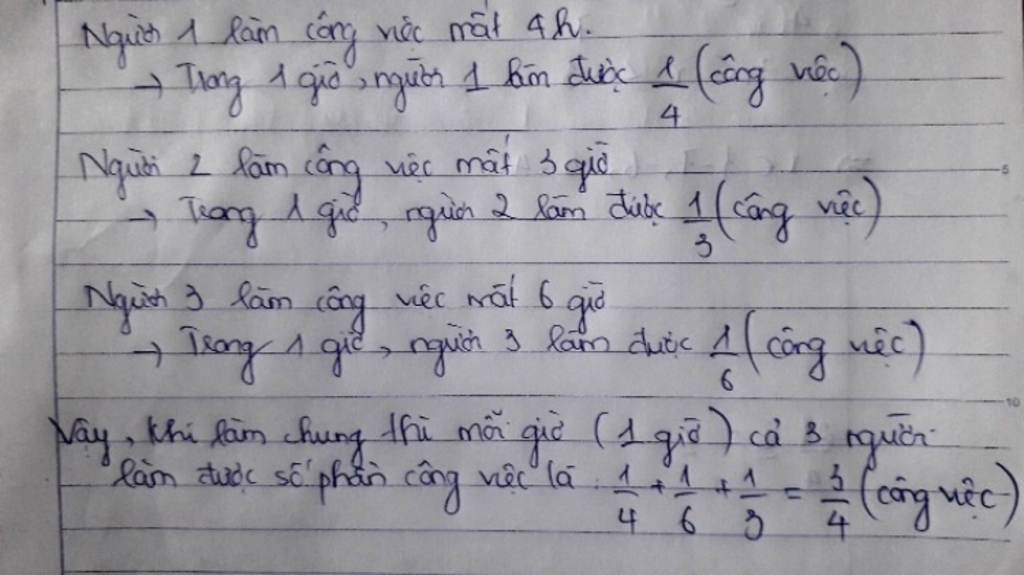 Người 1 làm công việc mất 4h.
→ Trong 1 giờ, người 1 làm được 1/4 (công việc)
Người 2 làm công việc mất 3 giờ
→ Trong 1 giờ, người 2 làm được 1/3 (công việc)
Người 3 làm công việc mất 6 giờ
→ Trong 1 giờ, người 3 làm được 1/6 (công việc)
Vậy, khi làm chung thì mỗi giờ (1 giờ) cả 3 người
làm được số phần công việc là: 1/4 + 1/6 + 1/3 = 3/4 (công việc)